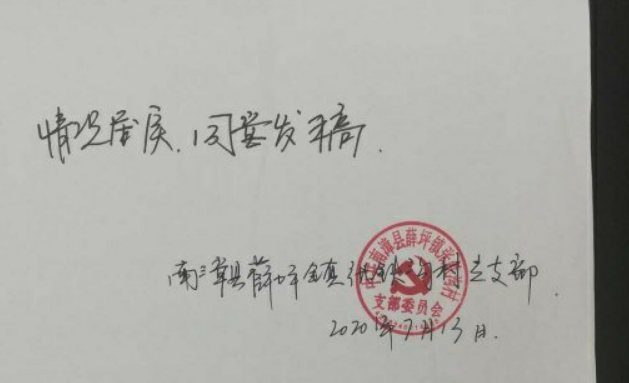 情况属实,同意发稿.
南漳县薛坪镇 村党支部.
中共南漳县薛坪镇 村
支部委员会
2020年7月13日.